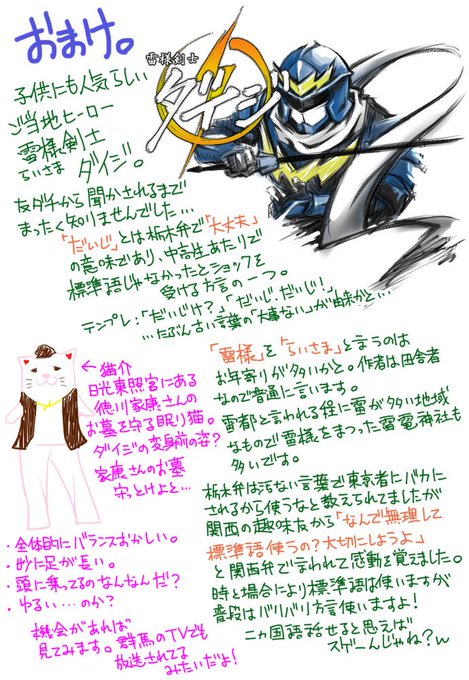 おまけ。
雷様剣士
ダイジ
子供にも人気らしい
ご当地ヒーロー
雷様剣士
らいさま ダイジ。
友ダチから聞かされるまで
まったく知りませんでした…
「だいじ」とは栃木弁で「大丈夫」
の意味であり、中高生あたりで
標準語じゃなかったとショックを
受ける方言の一つ。
テンプレ:「だいじけ?」「だいじ、だいじ!」
…たぶん古い言葉の「大事ない」が由来かと…
←猫介
日光東照宮にある
徳川家康さんの
お墓を守る眠り猫。
ダイジの変身前の姿?
家康さんのお墓
守っとけよと…
・全体的にバランスおかしい。
・妙に足が長い。
・頭に乗ってるのなんなんだ?
・ゆるい…のか?
機会があれば
見てみます。群馬のTVでも
放送されてる
みたいだよ!
「雷様」を「らいさま」と言うのは
お年寄りが多いかと。作者は田舎者
なので普通に言います。
雷都と言われる位に雷が多い地域
なもので雷様をまつった雷電神社も
多いです。
栃木弁は汚ない言葉で東京者にバカに
されるから使うなと教えられてましたが
関西の趣味友から「なんで無理して
標準語使うの?大切にしようよ」
と関西弁で言われて感動を覚えました。
時と場合により標準語は使いますが
普段はバリバリ方言使いますよ!
二ヵ国語話せると思えば
スゲーんじゃね?ん